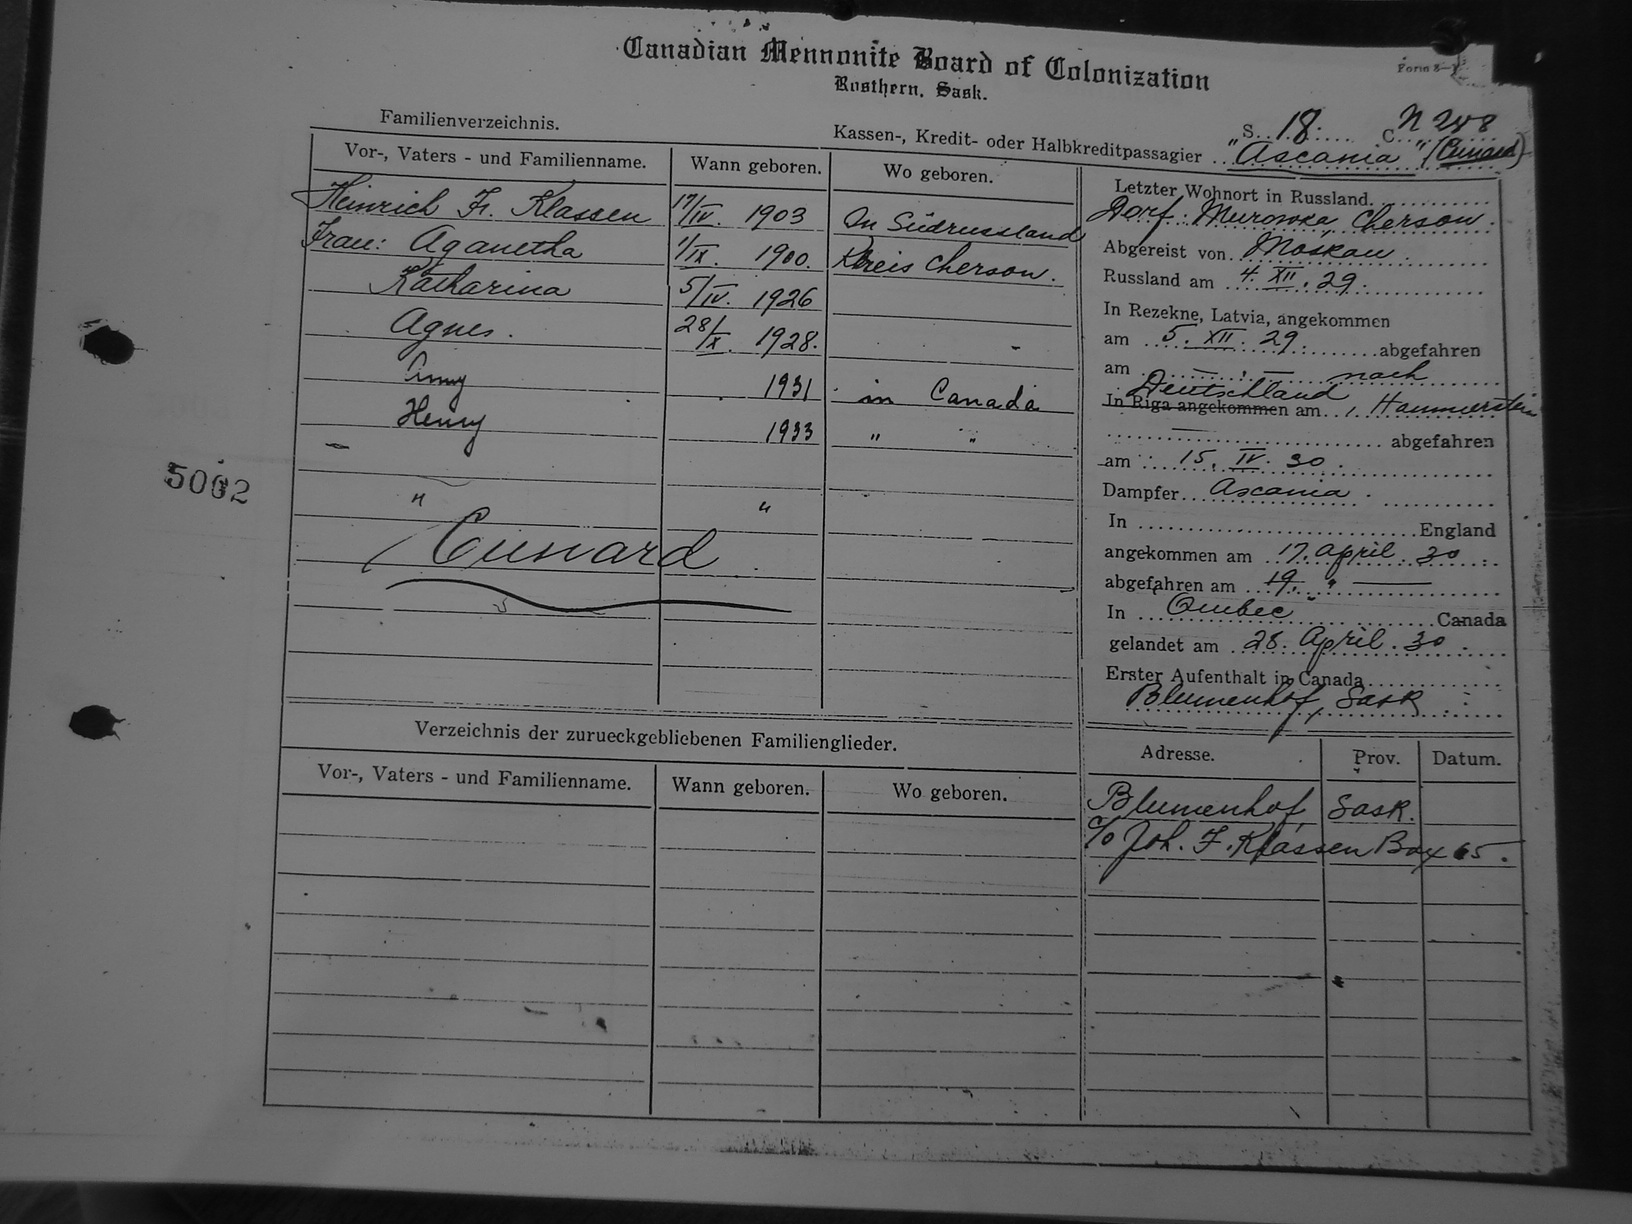 Canadian Mennonite Board of Colonization
Rosthern, Sask.
Form 8-
Familienverzeichnis.
S. 18. C. N 288
Kassen-, Kredit- oder Halbkreditpassagier "Ascania" (Cunard)
Vor-, Vaters - und Familienname. Wann geboren. Wo geboren.
Heinrich Fr. Klassen 17/IV. 1903 In Südrussland
Frau: Aganetha 1/IX. 1900. Kreis Cherson.
Katharina 5/IV. 1926
Agnes. 28/X. 1928.
1931 in Canada
Henry 1933 " "
" "
Cunard
5002
Letzter Wohnort in Russland
Dorf: Murowka, Cherson.
Abgereist von Moskau.
Russland am 4. XII. 29.
In Rezekne, Latvia, angekommen
am 5. XII. 29. abgefahren
am — . — nach
Deutschland
In Riga angekommen am Hammerstein
abgefahren
am 15. IV. 30.
Dampfer Ascania.
In England
angekommen am 17. April. 30
abgefahren am 19. "
In Quebec Canada
gelandet am 28. April. 30.
Erster Aufenthalt in Canada
Blumenhof, Sask
Verzeichnis der zurueckgebliebenen Familienglieder.
Vor-, Vaters - und Familienname. Wann geboren. Wo geboren.
Adresse. Prov. Datum.
Blumenhof, Sask.
c/o Joh. F. Klassen Box 65.